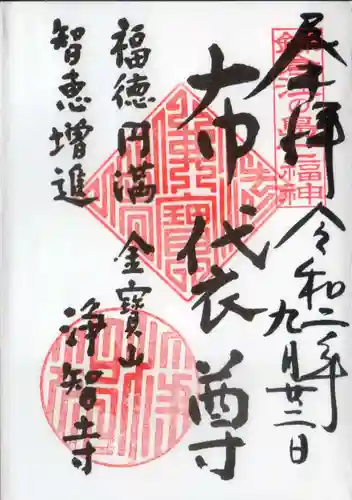 奉拝
令和二年
九月廿二日
鎌倉江の島七福神
大布袋尊
福徳円満
智恵増進
金寶山
浄智寺